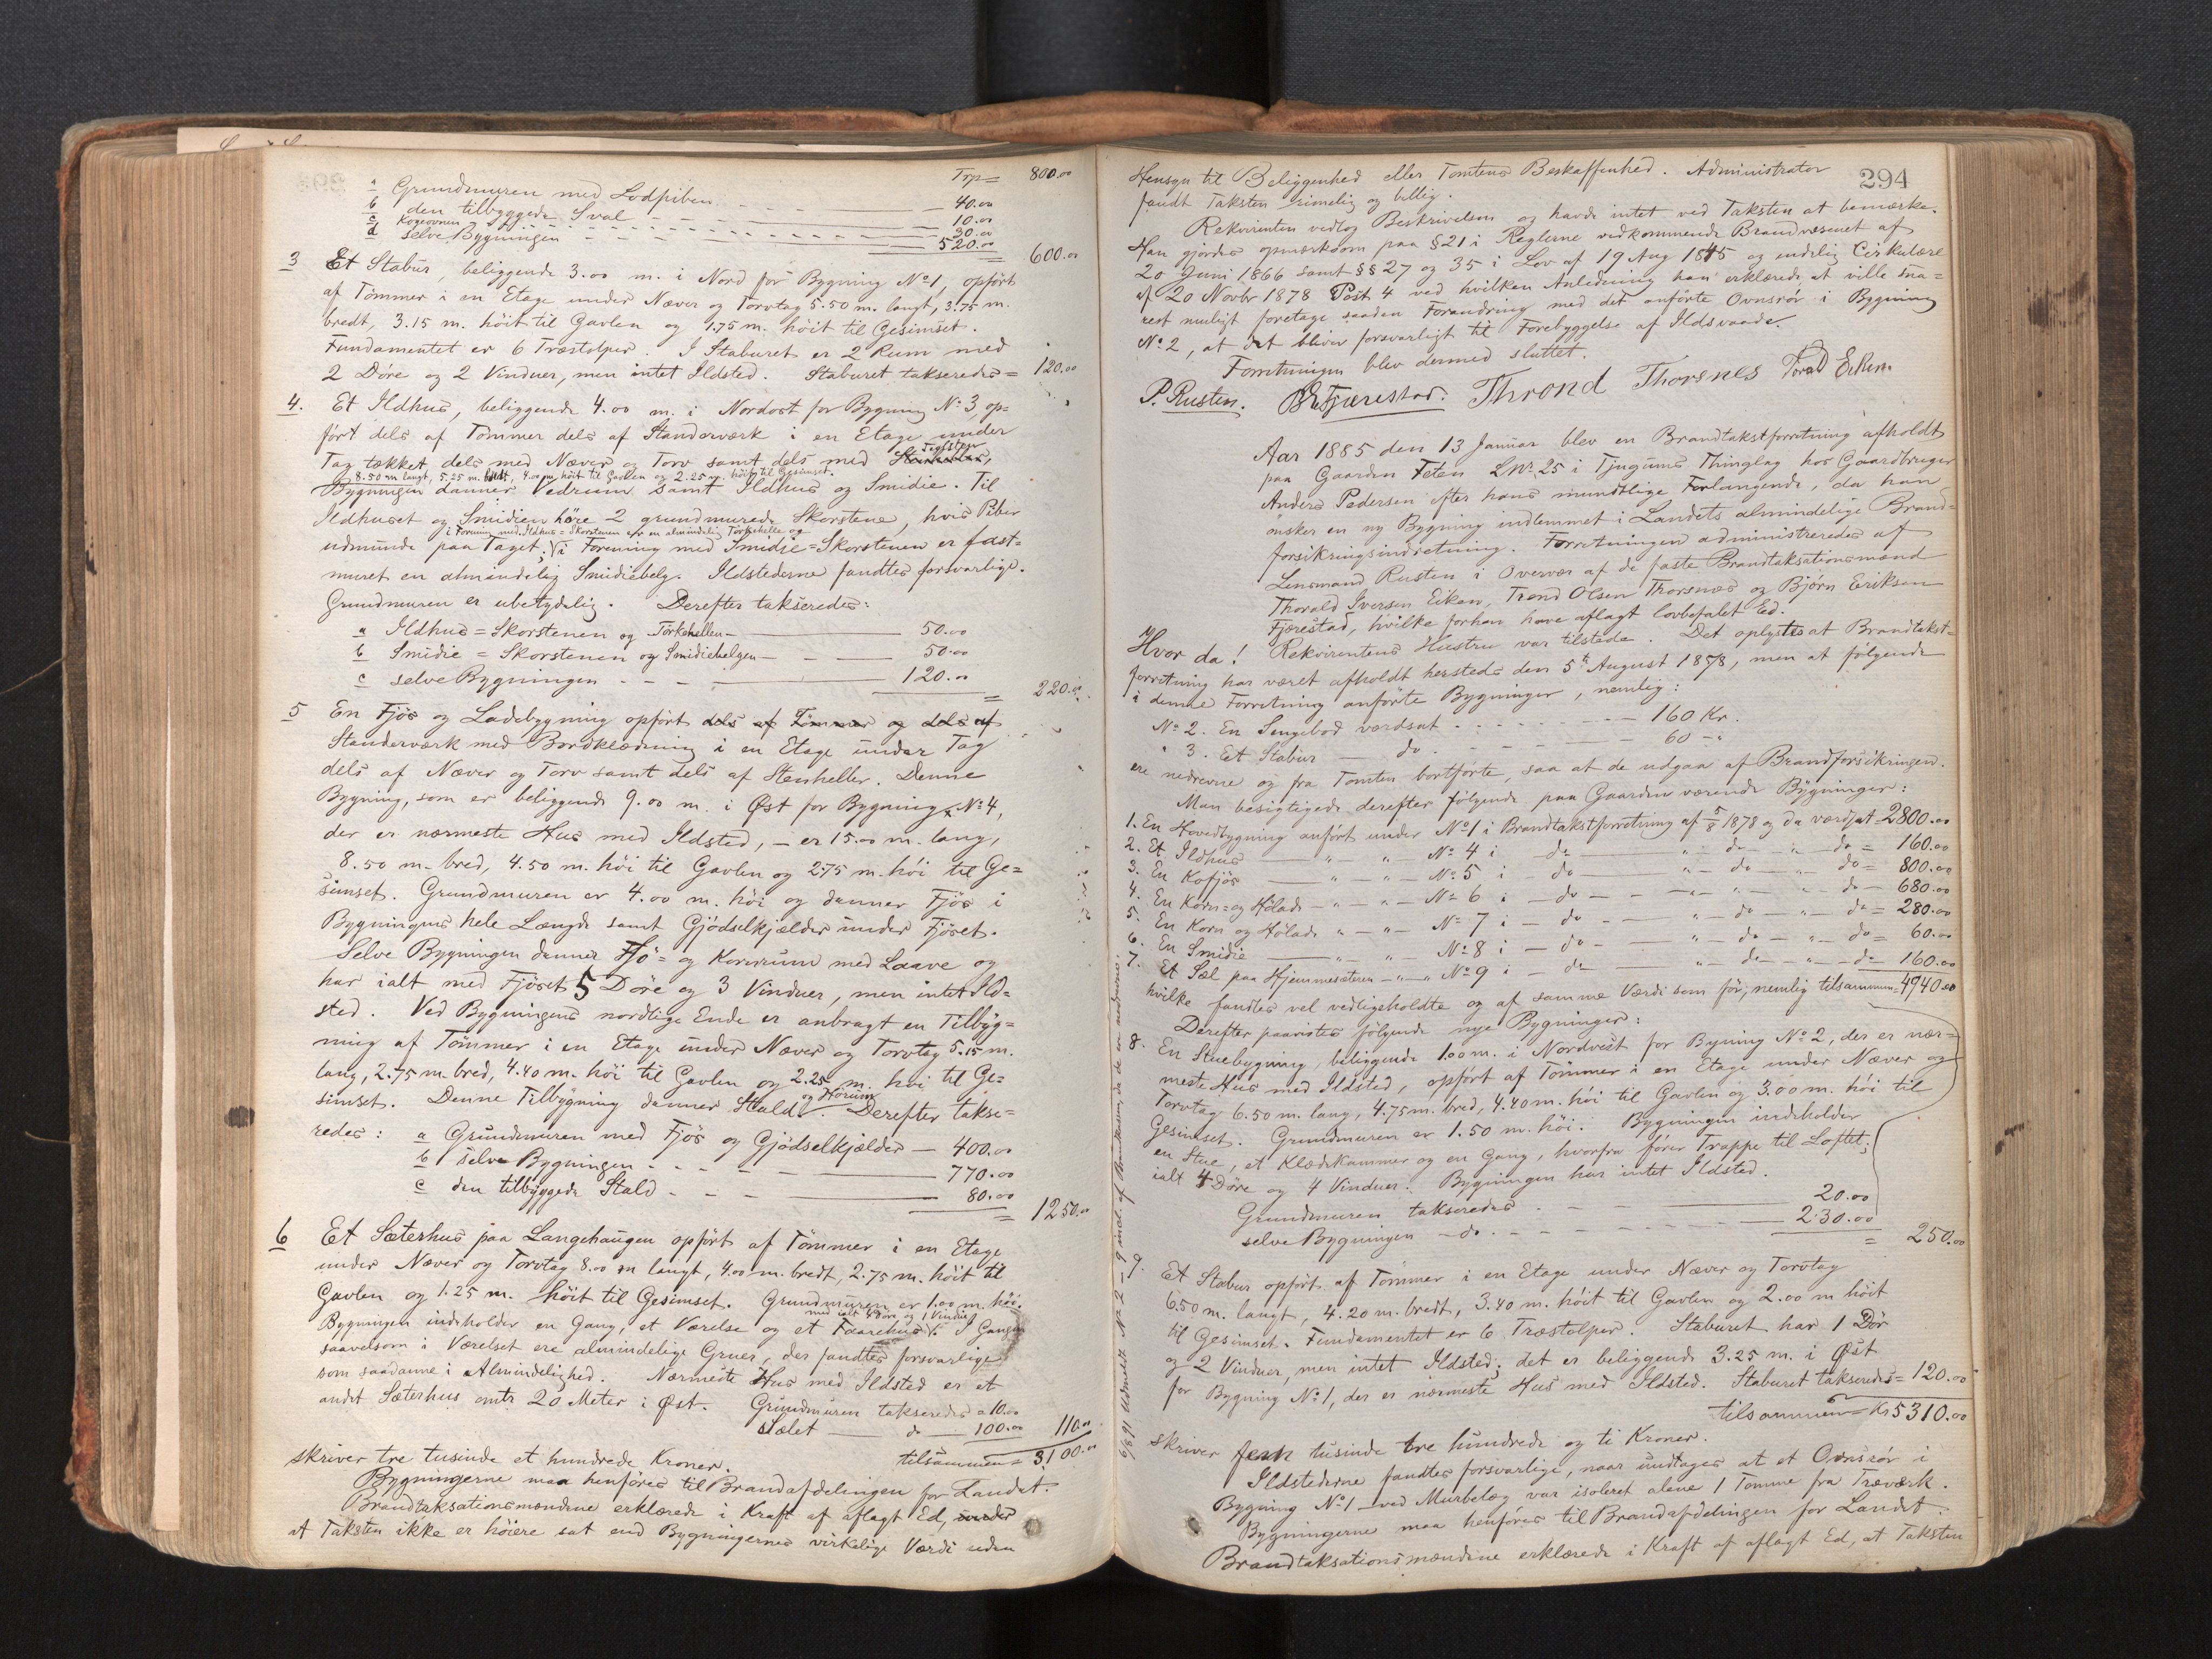 Trp = 800.00
a Grundmuren med Lodpiben - - 40.00
b den tilbyggede Sval - - - 10.00
c Kogeovnen - - - 30.00
d selve Bygningen - - - 520.00
= 600.00
3 Et Stabur, beliggende 3.00 m. i Nord for Bygning No 1, opført
af Tømmer i en Etage under Næver og Torvtag 5.50 m. langt, 3.75 m.
bredt, 3.15 m. höit til Gavlen og 1.75 m. höit til Gesimset.
Fundamentet er 6 Træstolper. I Staburet er 2 Rum med
2 Döre og 2 Vinduer, men intet Ildsted. Staburet takseredes = 120.00
4. Et Ildhus, beliggende 4.00 m. i Nordost for Bygning No 3, op=
ført dels af Tömmer dels af Standerværk i en Etage under
Tag tækket dels med Næver og Torv samt dels med Stenheller, Teglsten
8.50 m langt, 5.25 m. bredt, 4.00 m. höit til Gavlen og 2.25 m. höit til Gesimset.
Bygningen danner Vedrum samt Ildhus og Smidie. Til
Ildhuset og Smidien höre 2 grundmurede Skorstene, hvis Piber
i Forening med Ildhus=Skorstenen er en almindelig Törkehelle og
udmunde paa Taget; i Forening med Smidie=Skorstenen er fast=
muret en almindelig Smidiebelg. Ildstederne fandtes forsvarlige.
Grundmuren er ubetydelig. Derefter takseredes:
a Ildhus=Skorstenen og Törkehellen - 50.00
b Smidie=Skorstenen og Smidiebelgen - - 50.00
c selve Bygningen - - - 120.00
= 220.00
5 En Fjös og Ladebygning opført dels af Tömmer og dels af
Standerværk med Bordklædning i en Etage under Tag
dels af Næver og Torv samt dels af Stenheller. Denne
Bygning, som er beliggende 9.00 m. i Øst for Bygning No 4,
der er nærmeste Hus med Ildsted, - er 15.00 m. lang,
8.50 m. bred, 4.50 m. höi til Gavlen og 2.75 m. höi til Ge=
simset. Grundmuren er 4.00 m. höi og danner Fjös i
Bygningens hele Længde samt Gjödselkjelder under Fjöset.
Selve Bygningen danner Hö= og Kornrum med Laave og
har ialt med Fjöset 5 Döre og 3 Vinduer, men intet Ild=
sted. Ved Bygningens nordlige Ende er anbragt en Tilbyg=
ning af Tömmer i en Etage under Næver og Torvtag 5.15 m.
lang, 2.75 m. bred, 4.40 m. höi til Gavlen og 2.25 m. höi til Ge=
simset. Denne Tilbygning danner Stald og Hörum. Derefter takse=
redes: a Grundmuren med Fjös og Gjödselkjelder - 400.00
b selve Bygningen - - - 770.00
c den tilbyggede Stald - - 80.00
= 1250.00
6 Et Sæterhus paa Langehaugen opfört af Tömmer i en Etage
under Næver og Torvtag 8.00 m langt, 4.00 m. bredt, 2.75 m. höit til
Gavlen og 1.25 m. höit til Gesimset. Grundmuren er 1.00 m. höi.
Bygningen indeholder en Gang, et Værelse og et Faarehus med ialt 4 Döre og 1 Vindue. I Gangen
saavelsom i Værelset ere almindelige Gruer, der fandtes forsvarlige
som saadanne i Almindelighed. Nærmeste Hus med Ildsted er et
andet Sæterhus omtr 20 Meter i Øst. Grundmuren takseredes = 10.00
Sælet - do - 100.00 110.00
tilsammen = 3,100.00
skriver tre tusinde et hundrede Kroner.
Bygningerne maa henföres til Brandafdelingen for Landet.
Brandtaksationsmændene erklærede i Kraft af aflagt Ed, under
at Taksten ikke er höiere sat end Bygningernes virkelige Værdi uden
294
Hensyn til Beliggenhed eller Tomtens Beskaffenhed. Administrator
fandt Taksten rimelig og billig.
Rekvirenten vedtog Beskrivelsen og havde intet ved Taksten at bemærke.
Han gjordes opmærksom paa § 21 i Reglerne vedkommende Brandvæsenet af
20 Juni 1866 samt §§ 27 og 35 i Lov af 19 Aug 1845 og endelig Cirkulære
af 20 Novbr 1878 Post 4 ved hvilken Anledning han erklærede at ville sna=
rest muligt foretage saadan Forandring med det anförte Ovnsrör i Bygning
No 2, at det bliver forsvarligt til Forebyggelse af Ildsvaade.
Forretningen blev dermed sluttet.
P. Rusten. B E Fjærestad. Thrond Thorsnes Torald Eiken.
Aar 1885 den 13 Januar blev en Brandtakstforretning afholdt
paa Gaarden Feten LNr. 25 i Tjugums Thinglag hos Gaardbruger
Anders Pedersen efter hans mundtlige Forlangende, da han
önsker en ny Bygning indlemmet i Landets almindelige Brand=
forsikringsindretning. Forretningen administreredes af
Lensmand Rusten i Overvær af de faste Brandtaksationsmænd
Thorald Iversen Eiken, Trond Olsen Thorsnæs og Björn Eriksen
Fjærestad, hvilke forhen have aflagt lovbefalet Ed.
Hvor da! Rekvirentens Hustru var tilstede. Det oplystes at Brandtakst=
forretning har været afholdt hersteds den 5te August 1878, men at følgende
i denne Forretning anförte Bygninger, nemlig:
No 2. En Sengebod værdsat - - - 160 Kr.
" 3. Et Stabur - do - - - 60 - "
ere nedrevne og fra Tomten bortförte, saa at de udgaa af Brandforsikringen.
Man besigtigede derefter følgende paa Gaarden værende Bygninger:
1. En Hovedbygning anfört under No 1 i Brandtakstforretning af 5/8 1878 og da værdsat = 2800.00
2. Et Ildhus - " - " - No 4 i - do - " - do - " - do = 160.00
3. En Kofjös - " - " - No 5 i - do - " - do - " - do = 800.00
4. En Korn= og Hölade - " - " - No 6 i - do - " - " - do - 680.00
5. En Korn og Hölade " - " - No 7 i - do - " - do - " - do = 280.00
6. En Smidie - " - " - No 8 i - do - " - do - " - do = 60.00
7. Et Sæl paa Hjemmesæteren - " - " No 9 i - do - " - do - " - do - 160.00
hvilke fandtes vel vedligeholdte og af samme Værdi som för, nemlig tilsammen = 4940.00
Derefter paavistes følgende nye Bygninger:
8. En Stuebygning, beliggende 1.00 m. i Nordvest for Bygning No 2, der er nær=
meste Hus med Ildsted, opfört af Tömmer i en Etage under Næver og
Torvtag 6.50 m. lang, 4.75 m. bred, 4.40 m. höi til Gavlen og 3.00 m. höi til
Gesimset. Grundmuren er 1.50 m. höi. Bygningen indeholder
en Stue, et Klædekammer og en Gang, hvorfra förer Trappe til Loftet;
ialt 4 Döre og 4 Vinduer. Bygningen har intet Ildsted.
Grundmuren takseredes - - 20.00
selve Bygningen - do - - - 230.00
= 250.00
9. Et Stabur opfört af Tömmer i en Etage under Næver og Torvtag
6.50 m. langt, 4.20 m. bredt, 3.40 m. höit til Gavlen og 2.00 m höit
til Gesimset. Fundamentet er 6 Træstolper. Staburet har 1 Dör
og 2 Vinduer, men intet Ildsted; det er beliggende 3.25 m. i Øst
for Bygning No 1, der er nærmeste Hus med Ildsted. Staburet takseredes = 120.00
tilsammen = Kr 5310.00
skriver fem tusinde tre hundrede og ti Kroner.
Ildstederne fandtes forsvarlige, naar undtages at et Ovnsrör i
Bygning No 1 ved Murbelæg var isoleret alene 1 Tomme fra Træværk.
Bygningerne maa henföres til Brandafdelingen for Landet.
Brandtaksationsmændene erklærede i Kraft af aflagt Ed, at Taksten
Udmeldt No 2 - 9 incl. af da ere nedrevne.